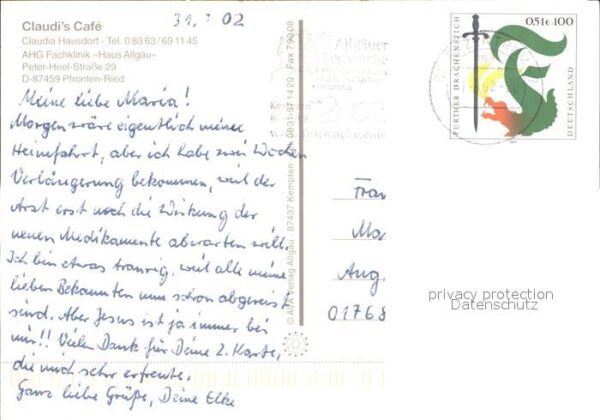 Claudi's Café
Claudia Hausdorf - Tel. 0 83 63 / 69 11 45
AHG Fachklinik »Haus Allgäu«
Peter-Heel-Straße 29
D-87459 Pfronten-Ried
02
Meine liebe Maria!
Morgen wäre eigentlich meine
Heimfahrt, aber ich habe zwei Wochen
Verlängerung bekommen, weil der
Arzt erst noch die Wirkung der
neuen Medikamente abwarten will.
Ich bin etwas traurig, weil alle meine
lieben Bekannten nun schon abgereist
sind. Aber Jesus ist ja immer bei
mir!! Vielen Dank für Deine 2. Karte,
die mich sehr erfreute.
Ganz liebe Grüße, Deine Elke
© AVA Verlag Allgäu · 87437 Kempten · 0831-5 71 4 20 · Fax 790 08
Allgäuer
Festwoche
FURTHER DRACHENSTICH
0,51€ 100
DEUTSCHLAND
Frau
Ma
Aug.
01768
privacy protection
Datenschutz